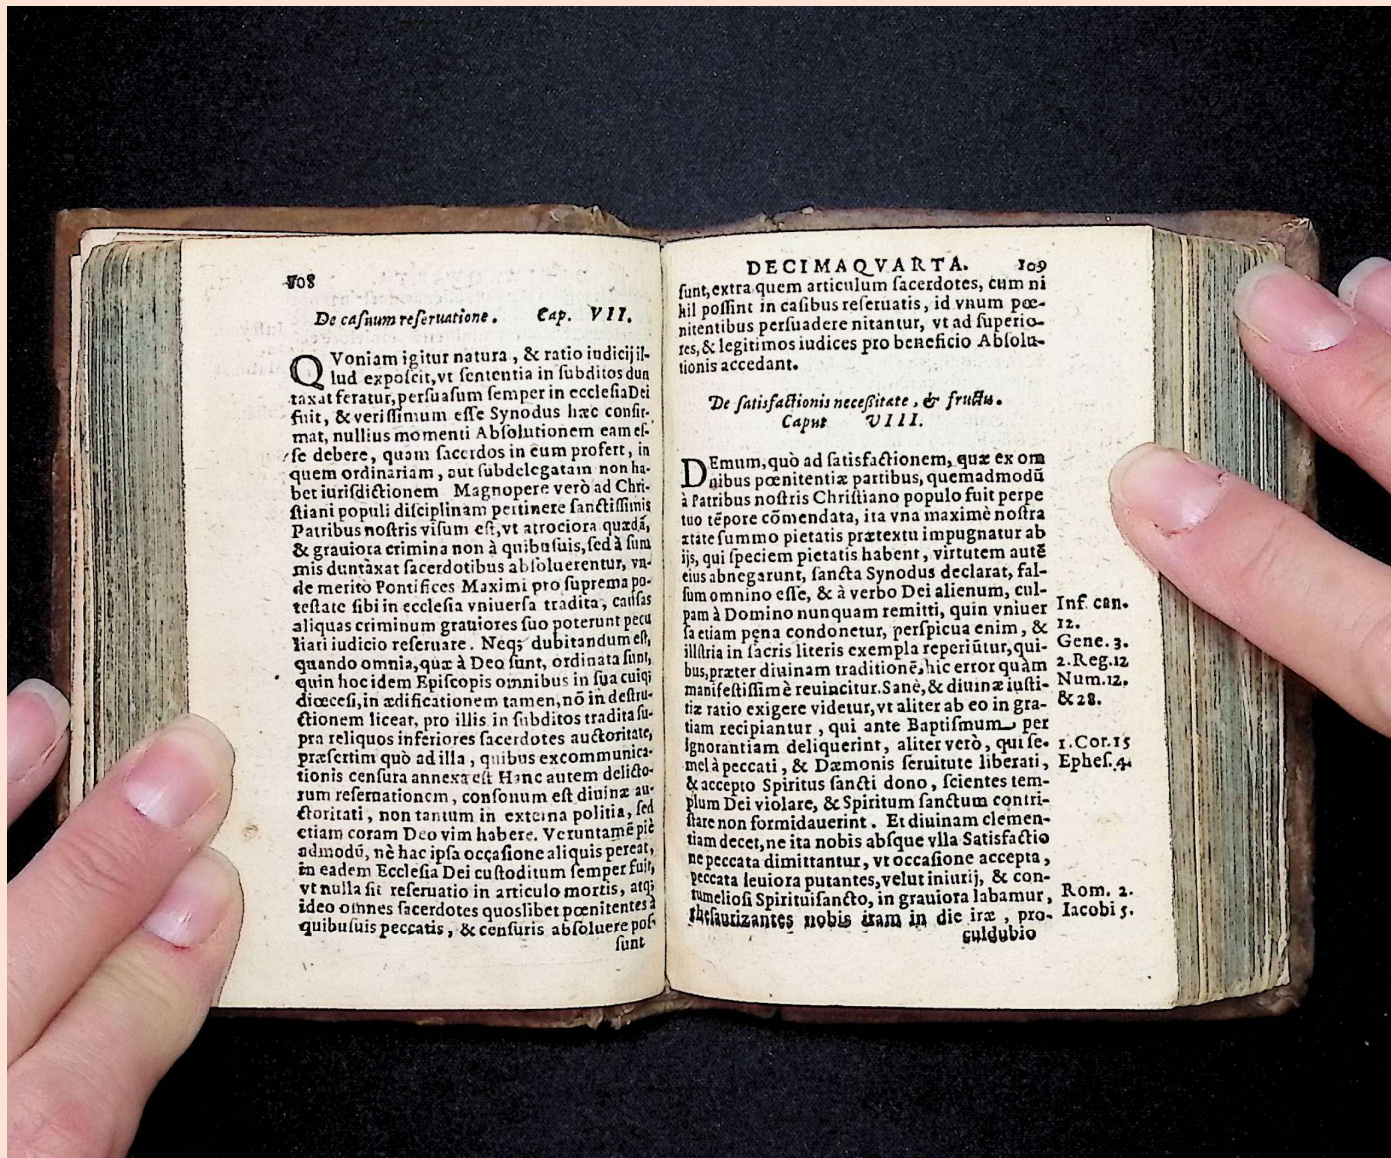 108
De casuum reseruatione. Cap. VII.
QVoniam igitur natura, & ratio iudicij il-
lud exposcit, vt sententia in subditos dun
taxat feratur, persuasum semper in ecclesia Dei
fuit, & verissimum esse Synodus hæc confir-
mat, nullius momenti Absolutionem eam es-
se debere, quam sacerdos in eum profert, in
quem ordinariam, aut subdelegatam non ha-
bet iurisdictionem Magnopere verò ad Chri-
stiani populi disciplinam pertinere sanctissimis
Patribus nostris visum est, vt atrociora quædã,
& grauiora crimina non à quibusuis, sed à sum
mis duntàxat sacerdotibus absoluerentur, vn-
de meritò Pontifices Maximi pro suprema po-
testate sibi in ecclesia vniuersa tradita, causas
aliquas criminum grauiores suo poterunt pecu
liari iudicio reseruare. Neq; dubitandum est,
quando omnia, quæ à Deo sunt, ordinata sunt,
quin hoc idem Episcopis omnibus in sua cuiq;
diœcesi, in ædificationem tamen, nõ in destru-
ctionem liceat, pro illis in subditos tradita su-
pra reliquos inferiores sacerdotes auctoritate,
præsertim quò ad illa, quibus excommunica-
tionis censura annexa est Hanc autem delicto-
rum reseruationem, consonum est diuinæ au-
ctoritati, non tantum in externa politia, sed
etiam coram Deo vim habere. Veruntamẽ piè
admodũ, nè hac ipsa occasione aliquis pereat,
in eadem Ecclesia Dei custoditum semper fuit,
vt nulla sit reseruatio in articulo mortis, atq;
ideo omnes sacerdotes quoslibet pœnitentes à
quibusuis peccatis, & censuris absoluere pos-
sunt
DECIMAQVARTA. 109
sunt, extra quem articulum sacerdotes, cum ni
hil possint in casibus reseruatis, id vnum pœ-
nitentibus persuadere nitantur, vt ad superio-
res, & legitimos iudices pro beneficio Absolu-
tionis accedant.
De satisfactionis necessitate, & fructu.
Caput VIII.
DEmum, quò ad satisfactionem, quæ ex om
nibus pœnitentiæ partibus, quemadmodũ
à Patribus nostris Christiano populo fuit perpe
tuo tẽpore cõmendata, ita vna maximè nostra
ætate summo pietatis prætextu impugnatur ab
ijs, qui speciem pietatis habent, virtutem autẽ
eius abnegarunt, sancta Synodus declarat, fal-
sum omnino esse, & à verbo Dei alienum, cul-
pam à Domino nunquam remitti, quin vniuer
sa etiam pęna condonetur, perspicua enim, &
illustria in sacris literis exempla reperiũtur, qui-
bus, præter diuinam traditionẽ, hic error quàm
manifestissimè reuincitur. Sanè, & diuinæ iusti-
tiæ ratio exigere videtur, vt aliter ab eo in gra-
tiam recipiantur, qui ante Baptismum per
Ignorantiam deliquerint, aliter verò, qui se-
mel à peccati, & Dæmonis seruitute liberati,
& accepto Spiritus sancti dono, scientes tem-
plum Dei violare, & Spiritum sanctum contri-
stare non formidauerint. Et diuinam clemen-
tiam decet, ne ita nobis absque vlla Satisfactio
ne peccata dimittantur, vt occasione accepta,
peccata leuiora putantes, velut iniurij, & con-
tumeliosi Spirituisancto, in grauiora labamur,
thesaurizantes nobis iram in die iræ, pro-
culdubio
Inf. can.
12.
Gene. 3.
2.Reg.12
Num.12.
& 28.
1.Cor.15
Ephes.4.
Rom. 2.
Iacobi 5.